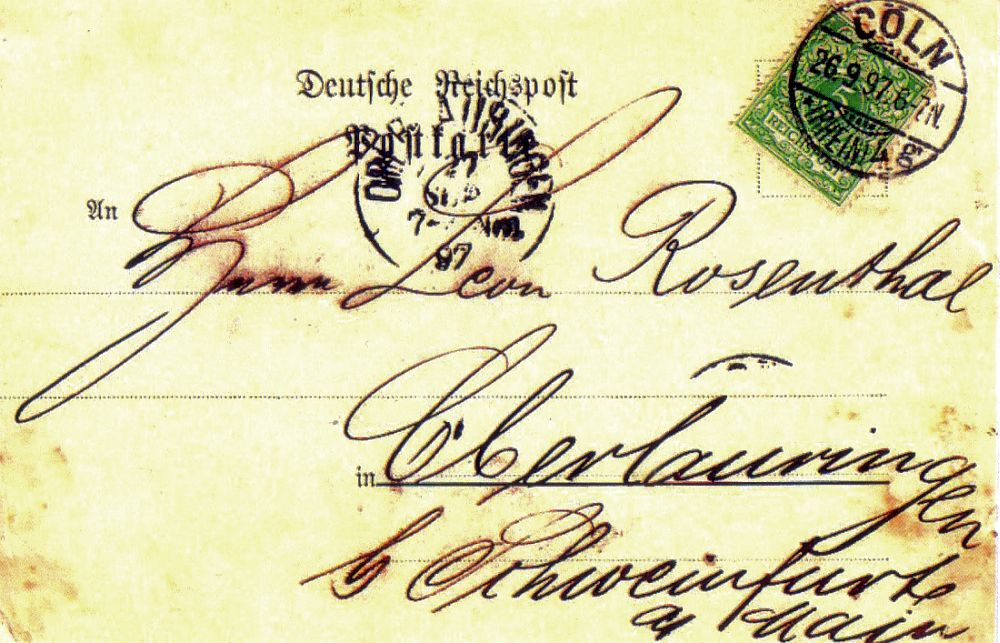 CÖLN
26.9.97. 6-7N.
*(RHEIN) 4
REICHSPOST
Deutsche Reichspost
Postkarte
97
An
Herrn Leon Rosenthal
in Oberlauringen
b/ Schweinfurt
a/ Main